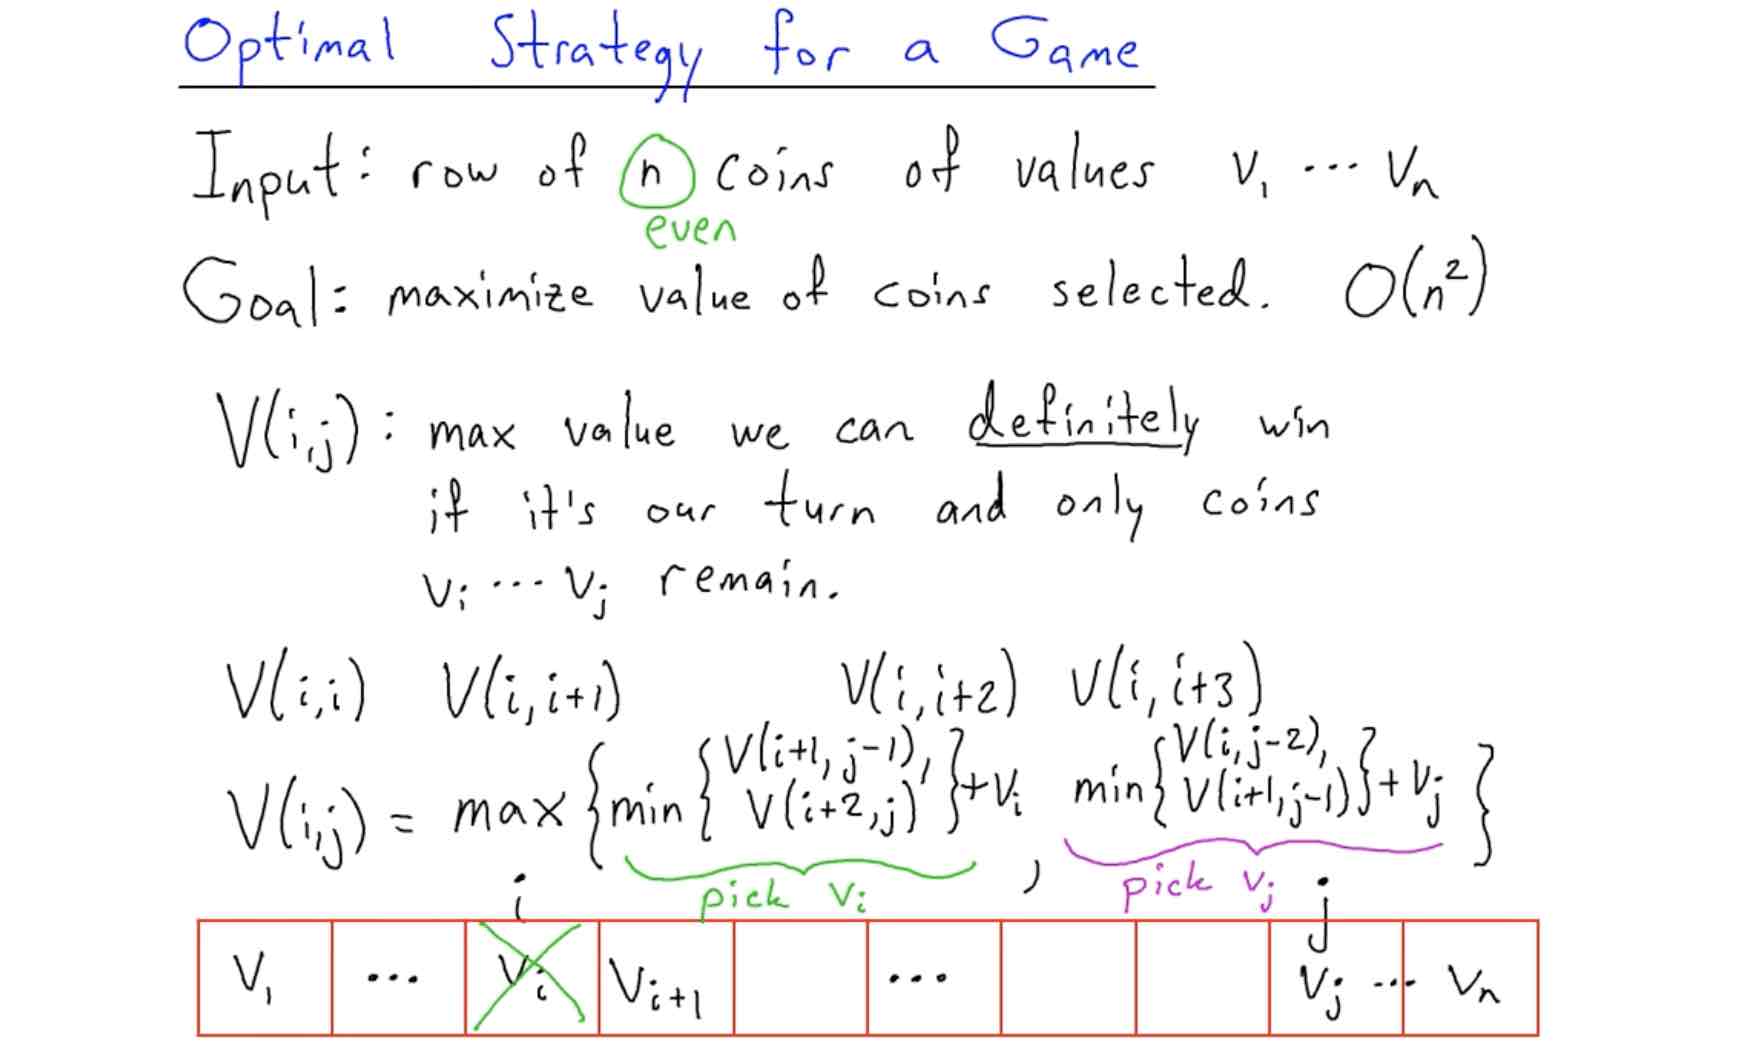 Optimal Strategy for a Game
Input: row of n coins of values v₁ ... vₙ
even
Goal: maximize value of coins selected. O(n²)
V(i,j): max value we can definitely win
if it's our turn and only coins
vᵢ ... vⱼ remain.
V(i,i) V(i,i+1) V(i,i+2) V(i,i+3)
V(i,j) = max { min { V(i+1,j-1), V(i+2,j) } + vᵢ , min { V(i,j-2), V(i+1,j-1) } + vⱼ }
pick vᵢ pick vⱼ
i j
V₁ ... Vᵢ Vᵢ₊₁ ... Vⱼ ... Vₙ